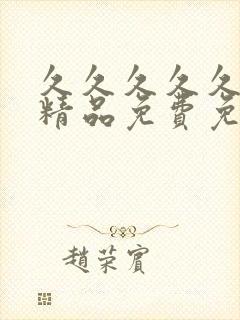 久久久久久
精品免费免
趙荣賓